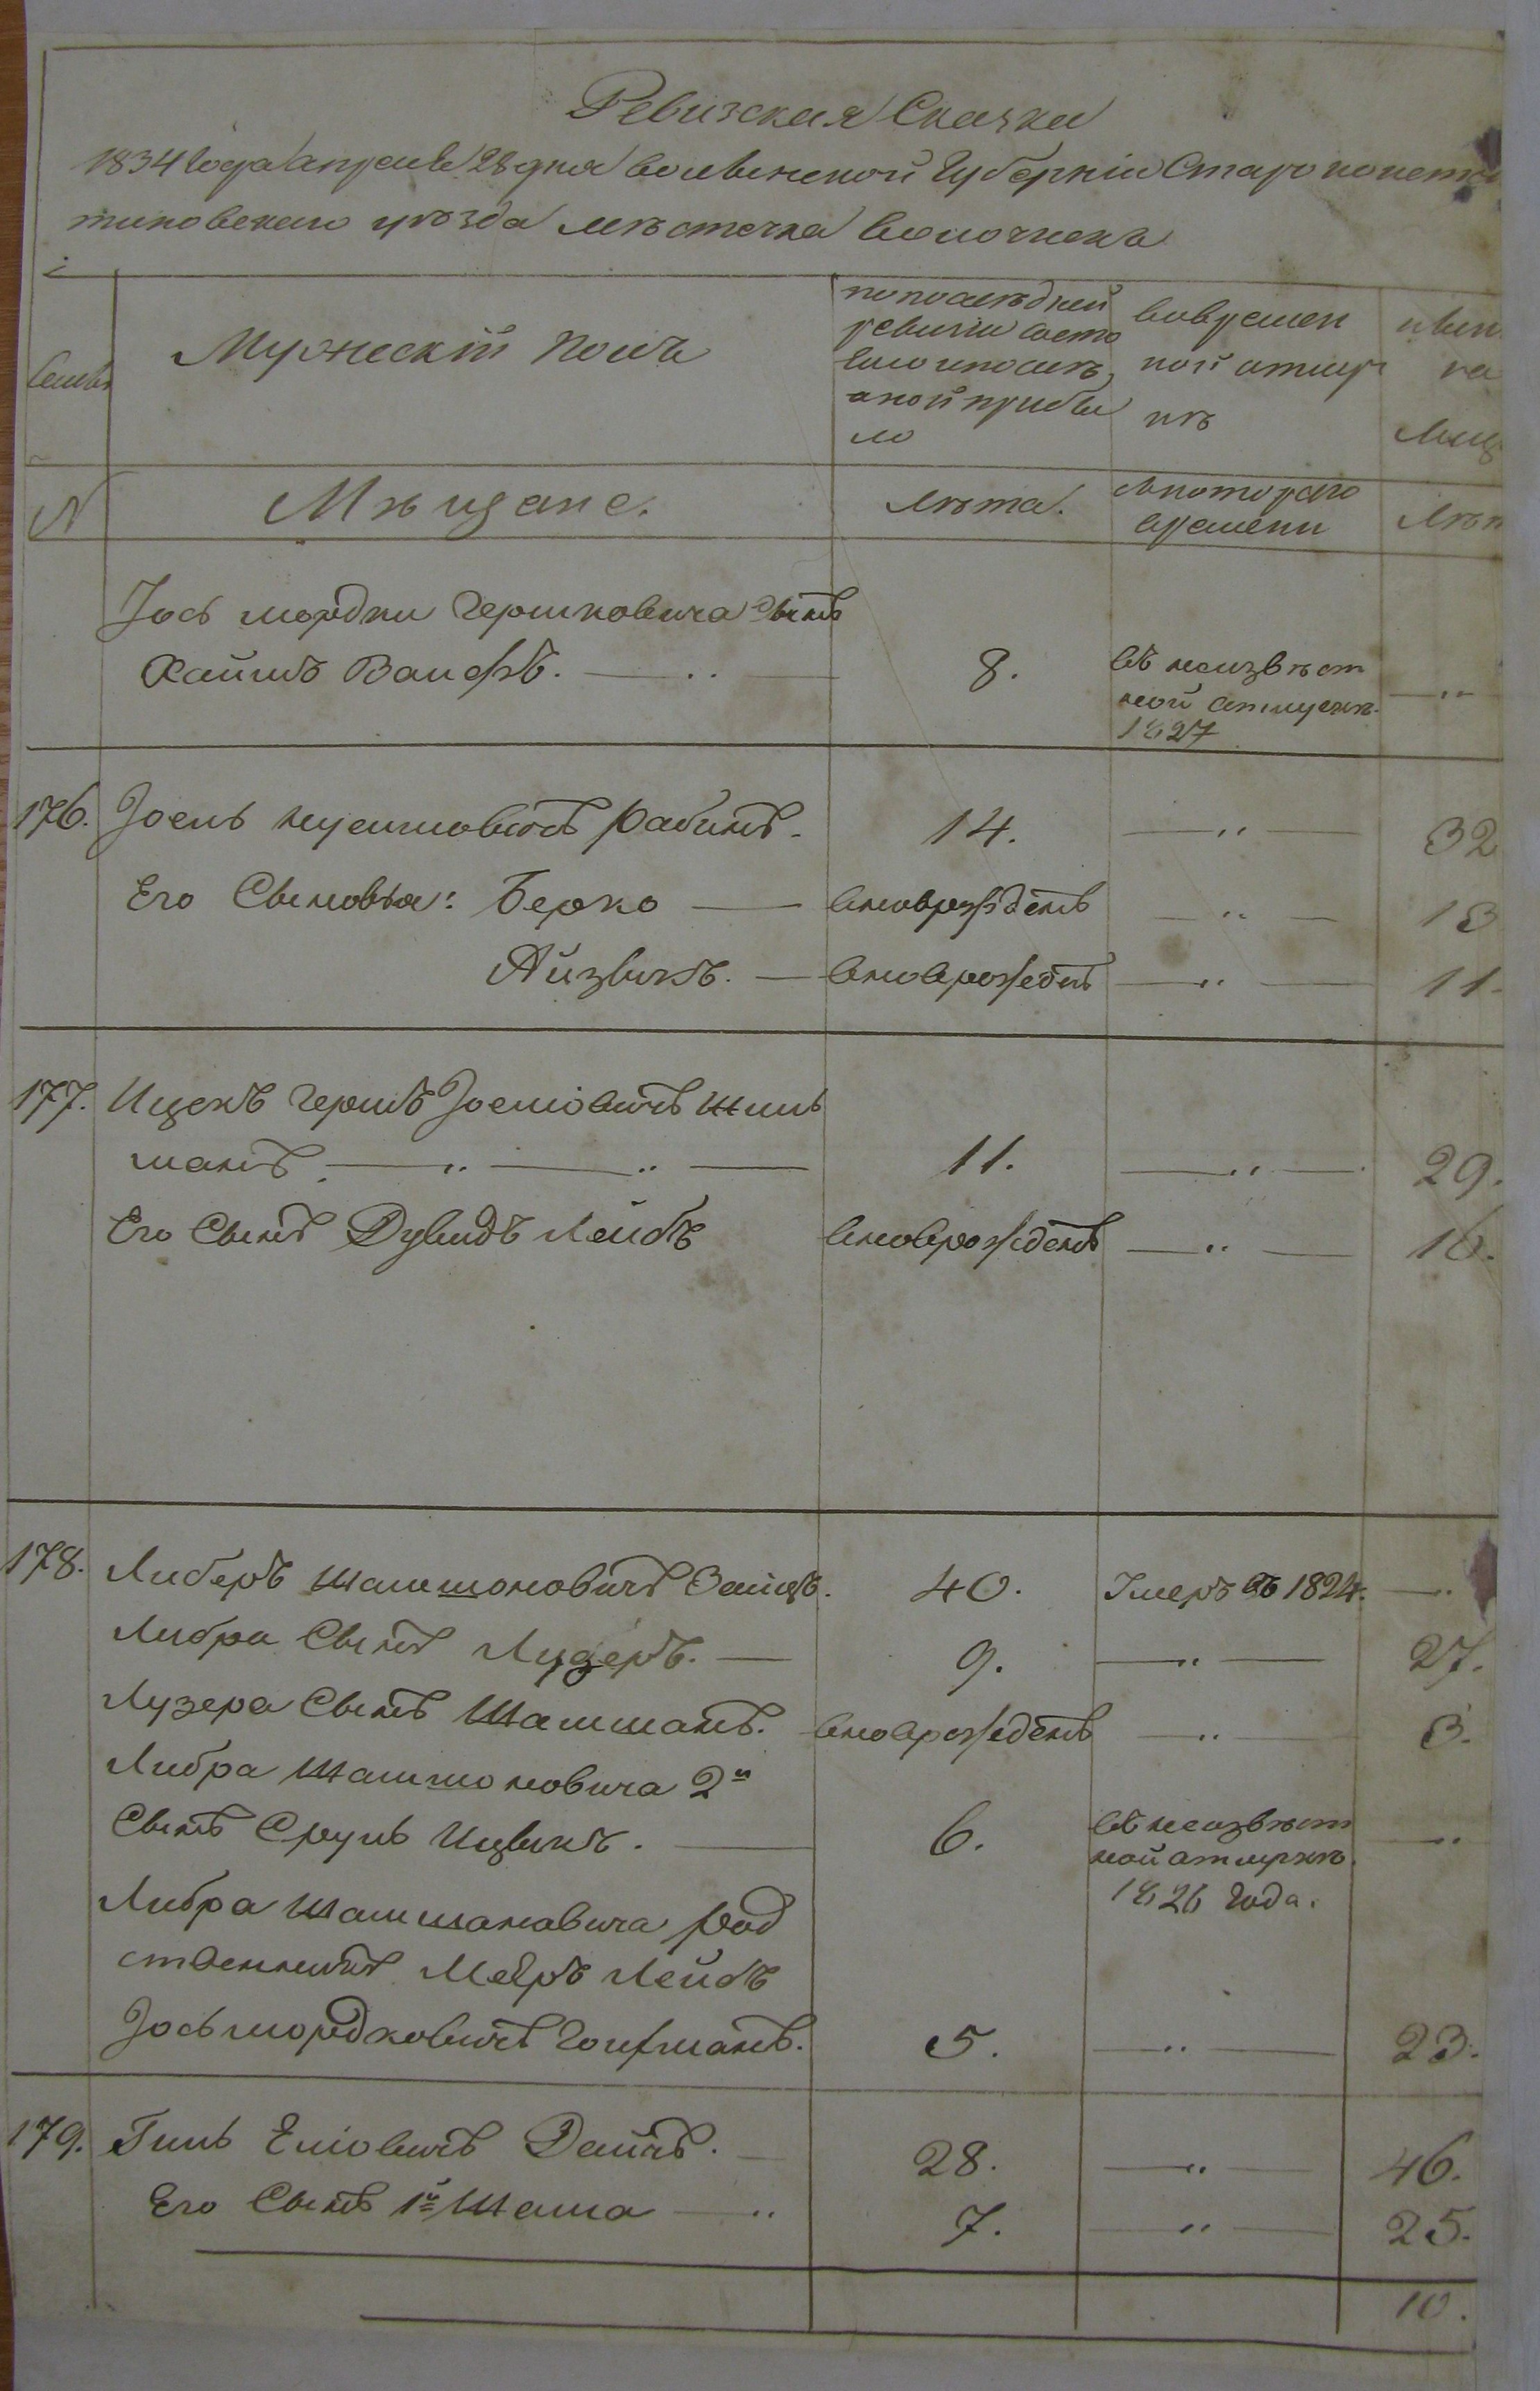 Ревизская Сказка
1834 года апреля 28 дня волынской Губерніи Старо констан
тиновскаго уѣзда мѣстечка волочискъ
Семьи
Мужескій полъ
по послѣдней
ревизіи состо
яло и послѣ
оной прибы
ло
вовремен
ной отлуч
кѣ
нын
на
лиц
N
Мѣщане.
Лѣта.
съ котораго
времени
Лѣт
Іось мордки Гершковича сынъ
Хаимъ Вайсъ. — „ —
8.
въ неизвѣст
ной отлучкѣ
1827
— „
176. Іоель Нусимовичъ Рабинъ.
14.
— „ —
32
Его Сыновья: Берко —
вноврожденъ
— „ —
13
Айзыкъ. —
вноврожденъ
— „ —
11.
177. Ицекъ Гершъ Іосиовичъ Шил
манъ. — „ — „ —
11.
— „ —
29.
Его Сынъ Дувидъ Лейбъ
вноврожденъ
— „ —
16.
178. Либеръ Шаишоновичъ Заицъ.
40.
Умеръ въ 1824.
— „
Либра Сынъ Лузеръ. —
9.
— „ —
27.
Лузера Сынъ Шамшанъ.
вноврожденъ
— „ —
3.
Либра Шамшоновича 2й
Сынъ Сруль Ицыкъ. —
6.
въ неизвѣст
ной отлучкѣ
1826 года.
— „
Либра Шамшановича род
ственникъ Мееръ Лейбъ
Іосьмордковичъ Гоифманъ.
5.
— „ —
23.
179. Гиль Еліовичъ Дейчъ. —
28.
— „ —
46.
Его Сынъ 1й Шама — „
7.
— „ —
25.
10.